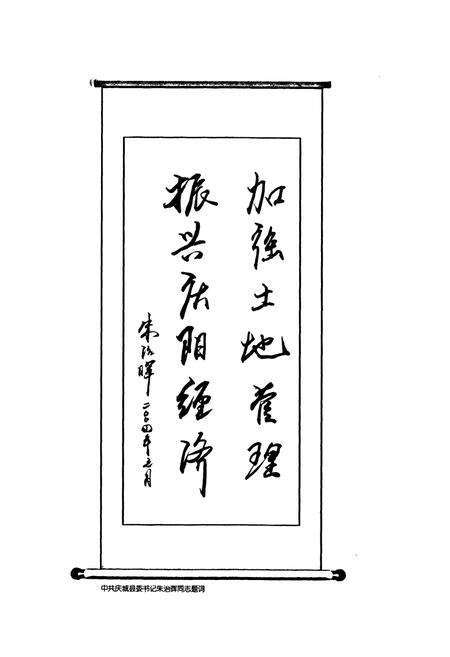 加强土地管理
振兴庆阳经济
朱治晖 二〇〇四年五月
中共庆城县委书记朱治晖同志题词